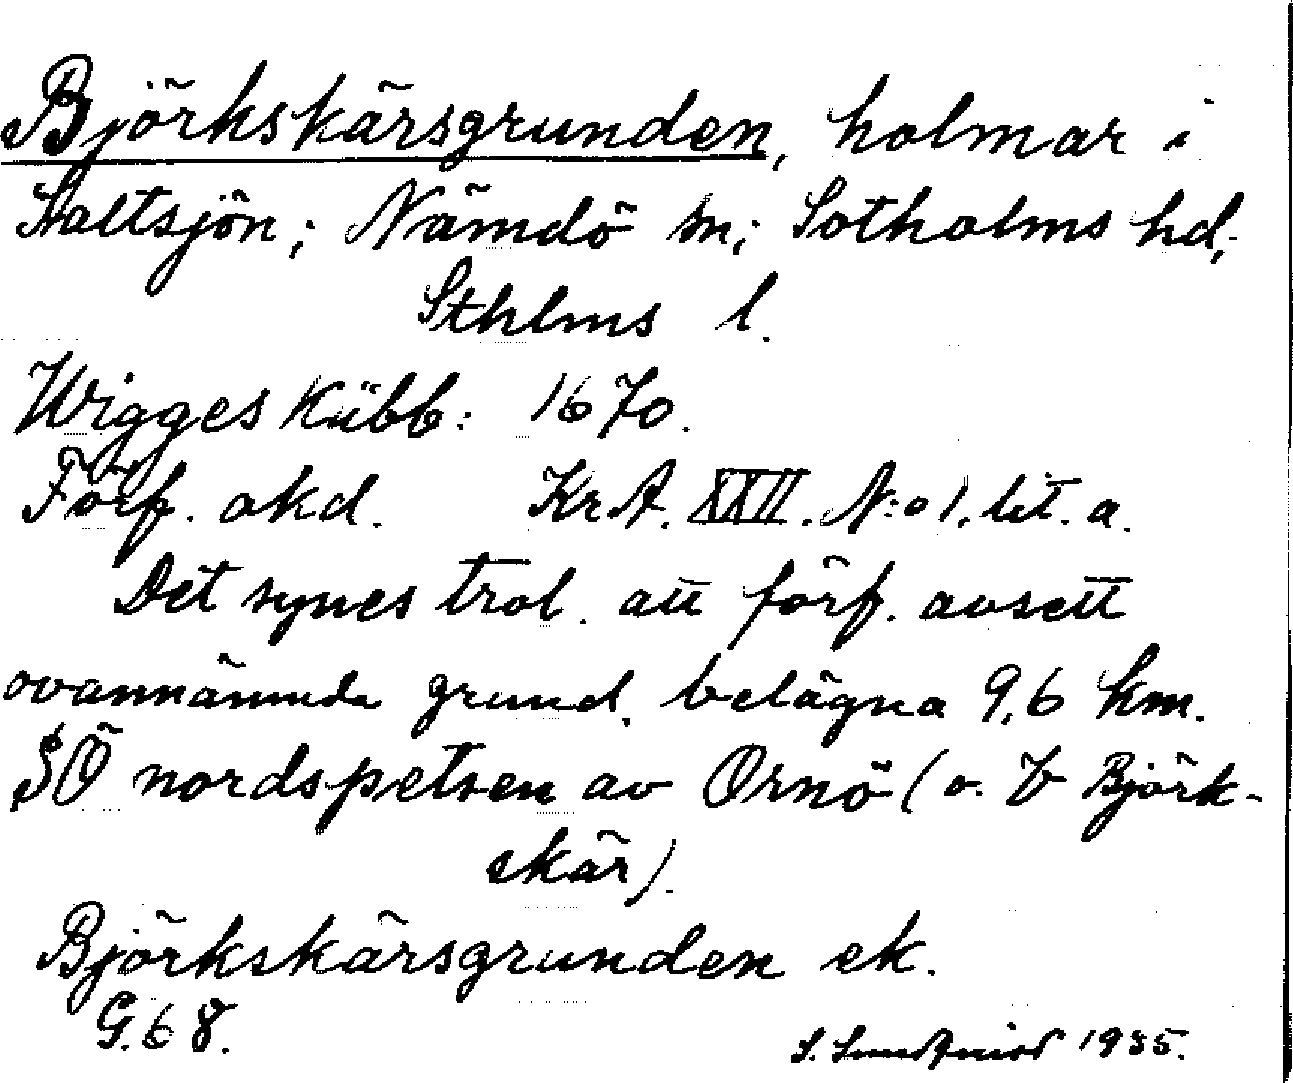 Björkskärsgrunden, holmar i
Saltsjön; Nämdö sn; Sotholms hd,
Sthlms l.
Wigges Kübb: 1670.
Förf. okd. KrA. XXVI. N:o 1. lit. a.
Det synes trol. att förf. avsett
ovannämnda grund. belägna 9,6 km.
SÖ nordspetsen av Ornö (o. V Björk-
skär).
Björkskärsgrunden ek.
G. 68.
S. 1935.